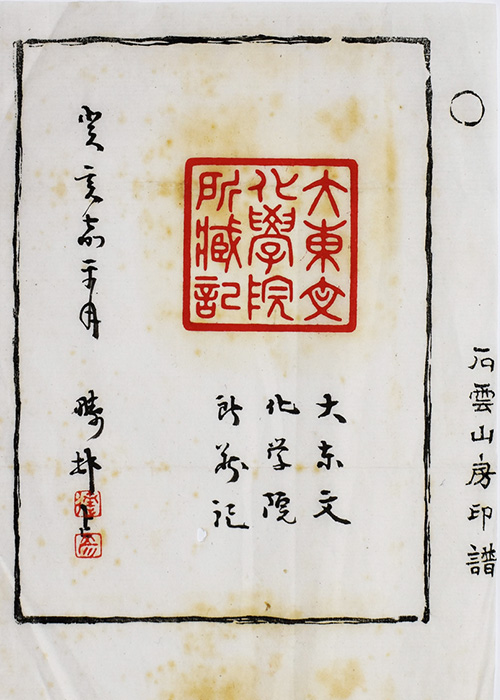 石雲山房印譜
大東文
化學院
所臧記
大东文
化学院
所蔵記
癸亥嘉平月
疇邨